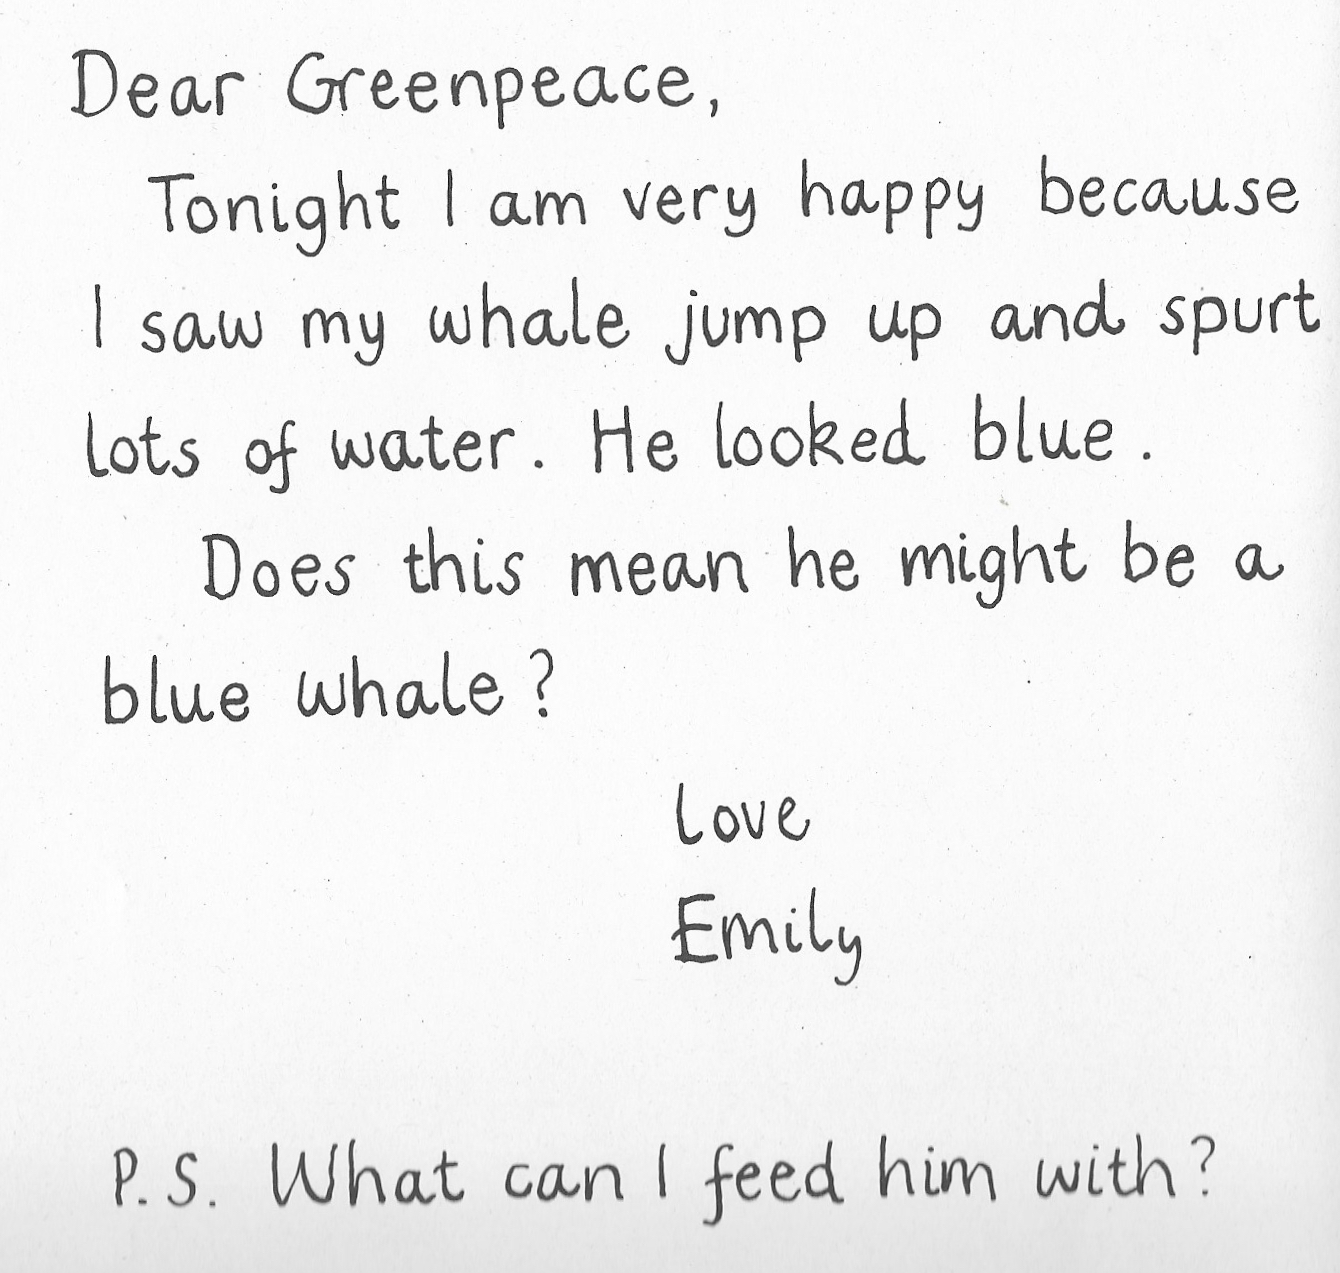 Dear Greenpeace,
Tonight I am very happy because
I saw my whale jump up and spurt
lots of water. He looked blue.
Does this mean he might be a
blue whale?
Love
Emily
P.S. What can I feed him with?